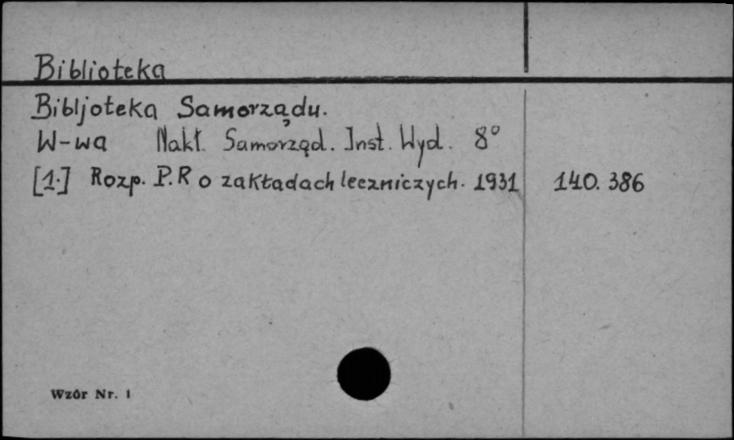 Biblioteka
Bibljoteka Samorządu.
W-wa Nakł. Samorząd. Inst. Wyd. 8°
[1.] Rozp. P.R o zakładach leczniczych. 1931 140.386
Wzór Nr. 1